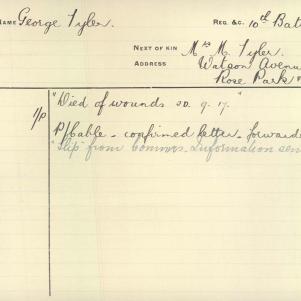 NAME George Tyler.
REG. &C. 10th Batt
NEXT OF KIN Mrs M. Tyler.
ADDRESS Watson Avenue
Rose Park
"Died of wounds 20. 9. 17."
P/Cable - confirmed letter - forwarde
"Slip" from Commrs. Information sen